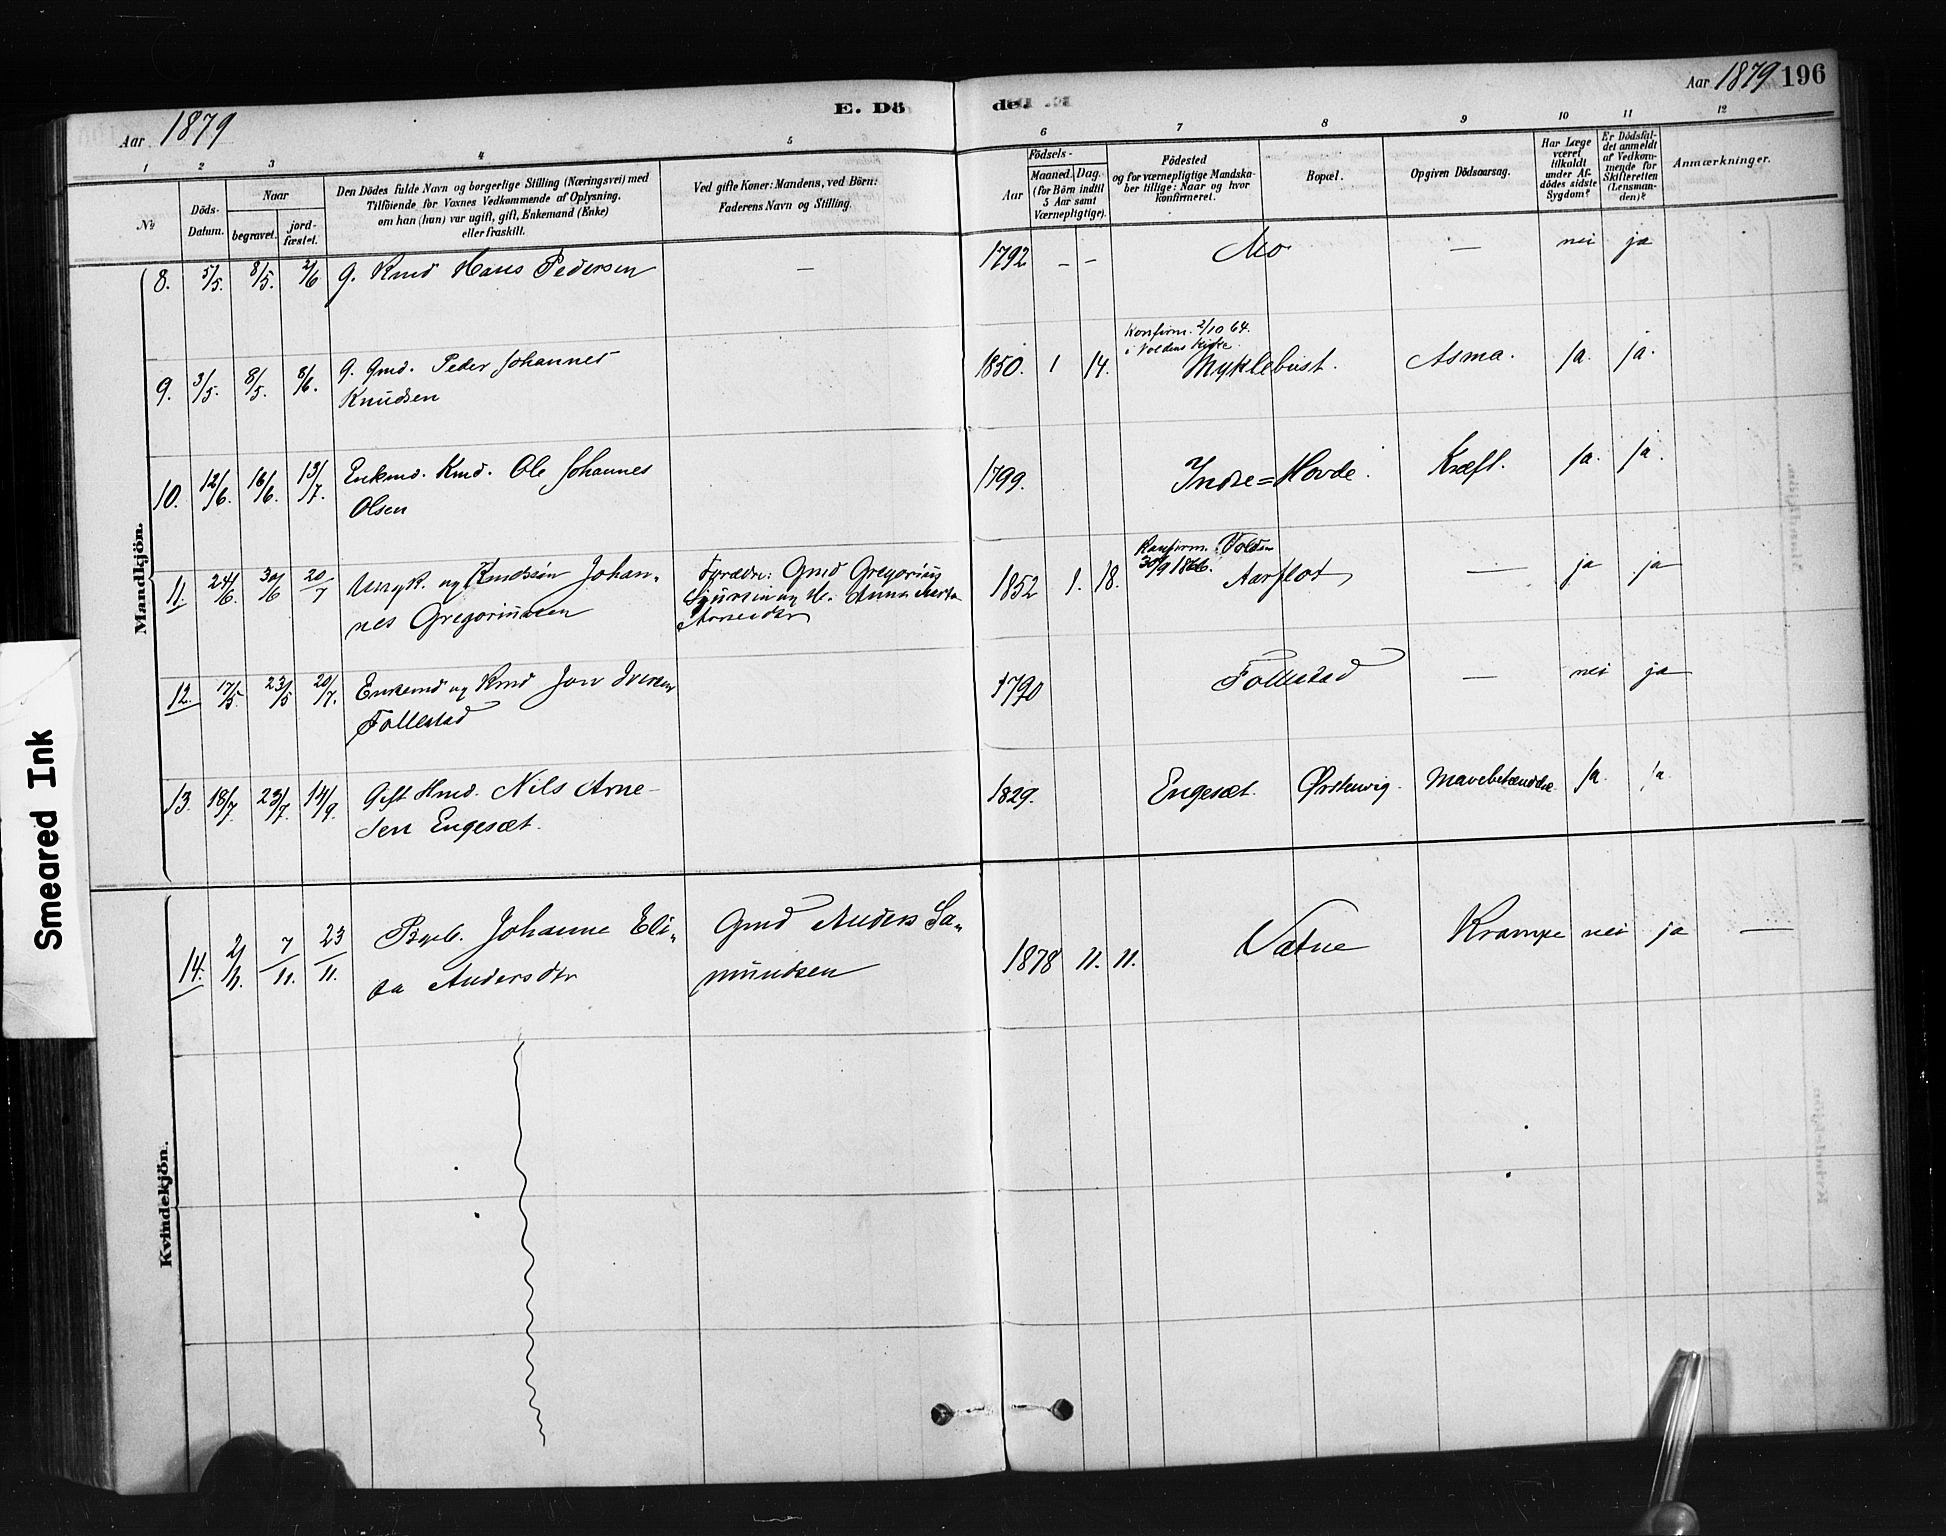 Aar 1879
E. Dö
de.
Aar 1879 196
1 2 3 4 5 6 7 8 9 10 11 12
No
Döds-Datum.
Naar
begravet.
jord-fæstet.
Den Dödes fulde Navn og borgerlige Stilling (Næringsvei) med
Tilföiende for Voxnes Vedkommende af Oplysning,
om han (hun) var ugift, gift, Enkemand (Enke)
eller fraskilt.
Ved gifte Koner: Mandens, ved Börn:
Faderens Navn og Stilling.
Födsels-
Aar
Maaned. Dag.
(for Börn indtil
5 Aar samt
Værnepligtige).
Födested
og for værnepligtige Mandska-
ber tillige: Naar og hvor
konfirmeret.
Bopæl.
Opgiven Dödsaarsag.
Har Læge
været
tilkaldt
under Af-
dödes sidste
Sygdom?
Er Dödsfal-
det anmeldt
af Vedkom-
mende for
Skifteretten
(Lensman-
den)?
Anmærkninger.
Mandkjön.
8. 5/5. 8/5. 2/6 g. Kmd Hans Pedersen — 1792 – – Mo — nei ja
Konfirm. 2/10 64.
i Voldens Kirke.
9. 3/5. 8/5. 8/6. g. Gmd. Peder Johannes 1850. 1 14. Myklebust. Asma. ja. ja.
Knudsen
10. 12/6. 16/6. 13/7. Enkmd. Kmd. Ole Johannes 1799. Indre=Hovde. Kræft. ja. ja.
Olsen
Konfirm. Volden
30/9 1866.
11. 24/6. 30/6 20/7 og Kmdssøn Johan- Forældre: Gmd Gregorius 1852 1. 18. Aarflot — ja ja
nes Gregoriussen Sjursen og H. Anna
Arnesdtr
12. 17/5. 23/5 20/7. Enkemd og Kmd Jon Iversen 1790 Follestad — nei ja
Follestad
13. 18/7. 23/7. 14/9. Gift Hmd. Nils Arne- 1829. Engesæt. Ørstenvig. Mavebetændelse ja. ja.
sen Engesæt.
Kvindekjön.
14. 2/11. 7/11. 23/11. Pigeb. Johanne Eli- Gmd Anders Sa- 1878 11. 11. Vatne Krampe nei ja —
sa Andersdtr mundsen
Smeared Ink